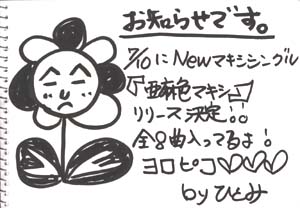 お知らせです。
7/10にNewマキシシングル
『亜麻色マキシ』
リリース決定!!
全8曲入ってるよ!
ヨロピコ♡♡♡
byひとみ